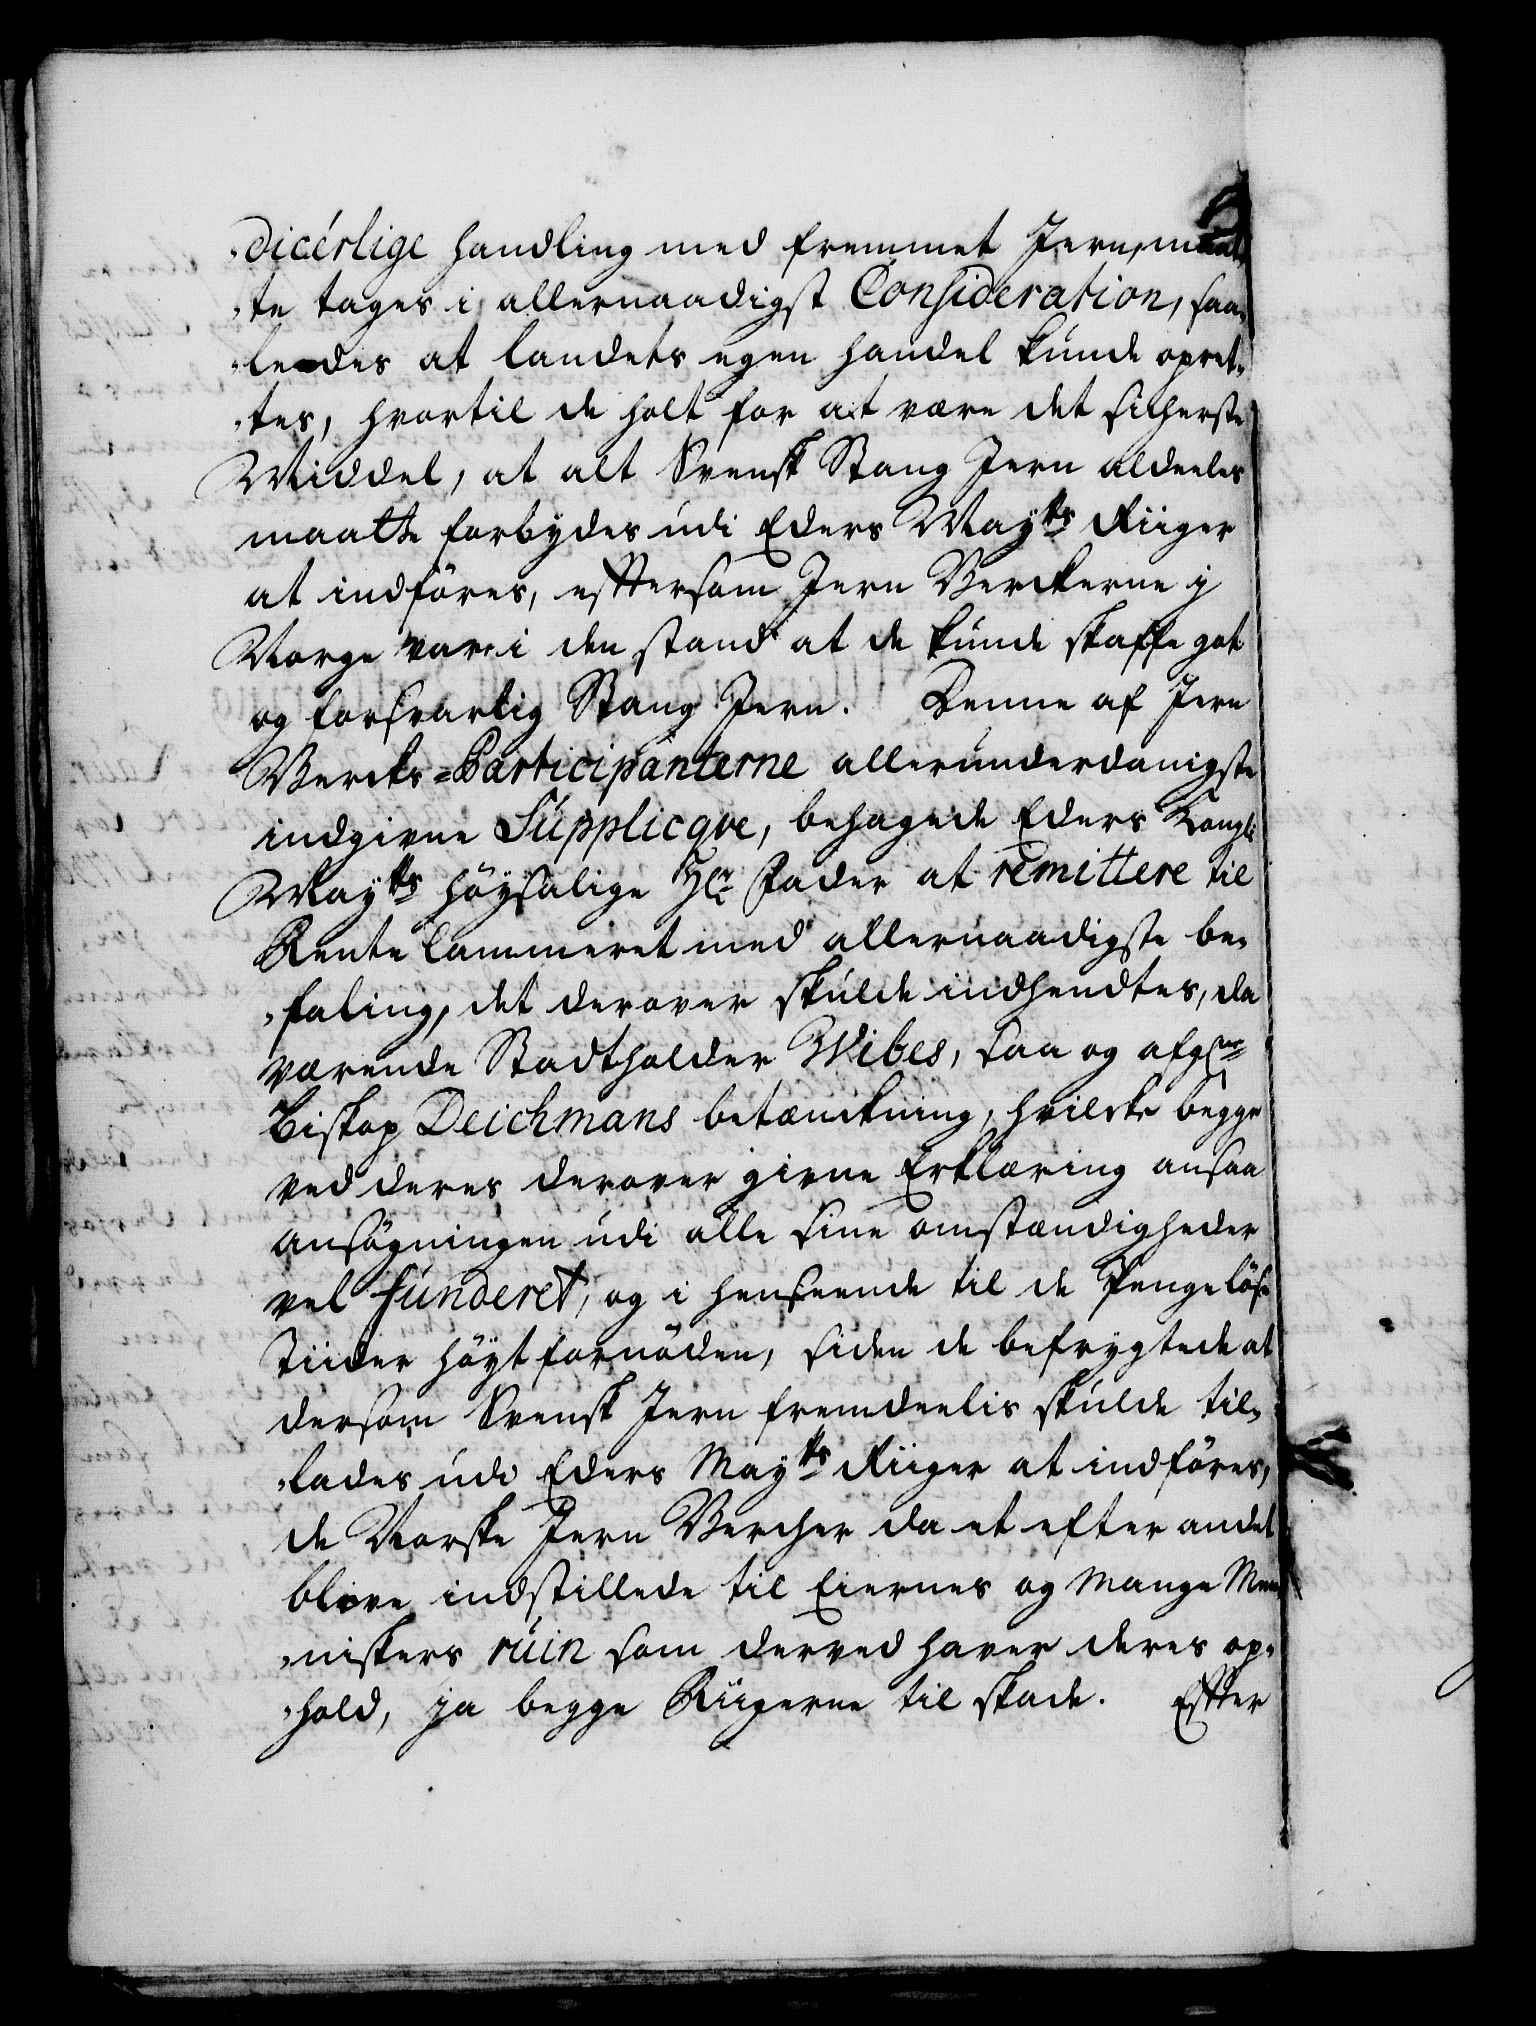 „dicérlige handling med fremmet Jern, maat„
„te tages i allernaadigst Consideration, saa„
„leedes at landets egen handel kunde opret„
„tes, hvortil de holt for at være det sicherste
Middel, at alt Svensk Stang Jern aldeeles
maatte forbydes udi Eders Mayts Riiger
at indföres, eftersom Jern Verckerne j
Norge vare i den stand at de kunde skaffe got
og forsvarlig Stang Jern. Denne af Jern
Vercks=Participanterne allerunderdanigste
indgivne Supplicqve, behagede Eders Kongl:
Mayts höysalige Hr Fader at remittere til
Rente Cammeret med allernaadigste be„
„faling, det derover skulde indhendtes, da
værende Stadtholder Wibes, saa og afgl:
Biskop Deichmans betænckning, hvilcke begge
ved deres derover givne Erklæring ansaa
ansögningen udi alle sine omstændigheder
vel funderet, og i henseende til de Penge löse
Tiider höyt fornöden, siden de befrygtede at
dersom Svensk Jern fremdeelis skulde til„
„lades udi Eders Mayts Riiger at indföres,
de Norske Jern Vercher da et efter andet
blive indstillede til Eiernes og Mange Men„
„niskers ruin som derved haver deres op„
„hold, ja begge Riigerne til skade. Efter